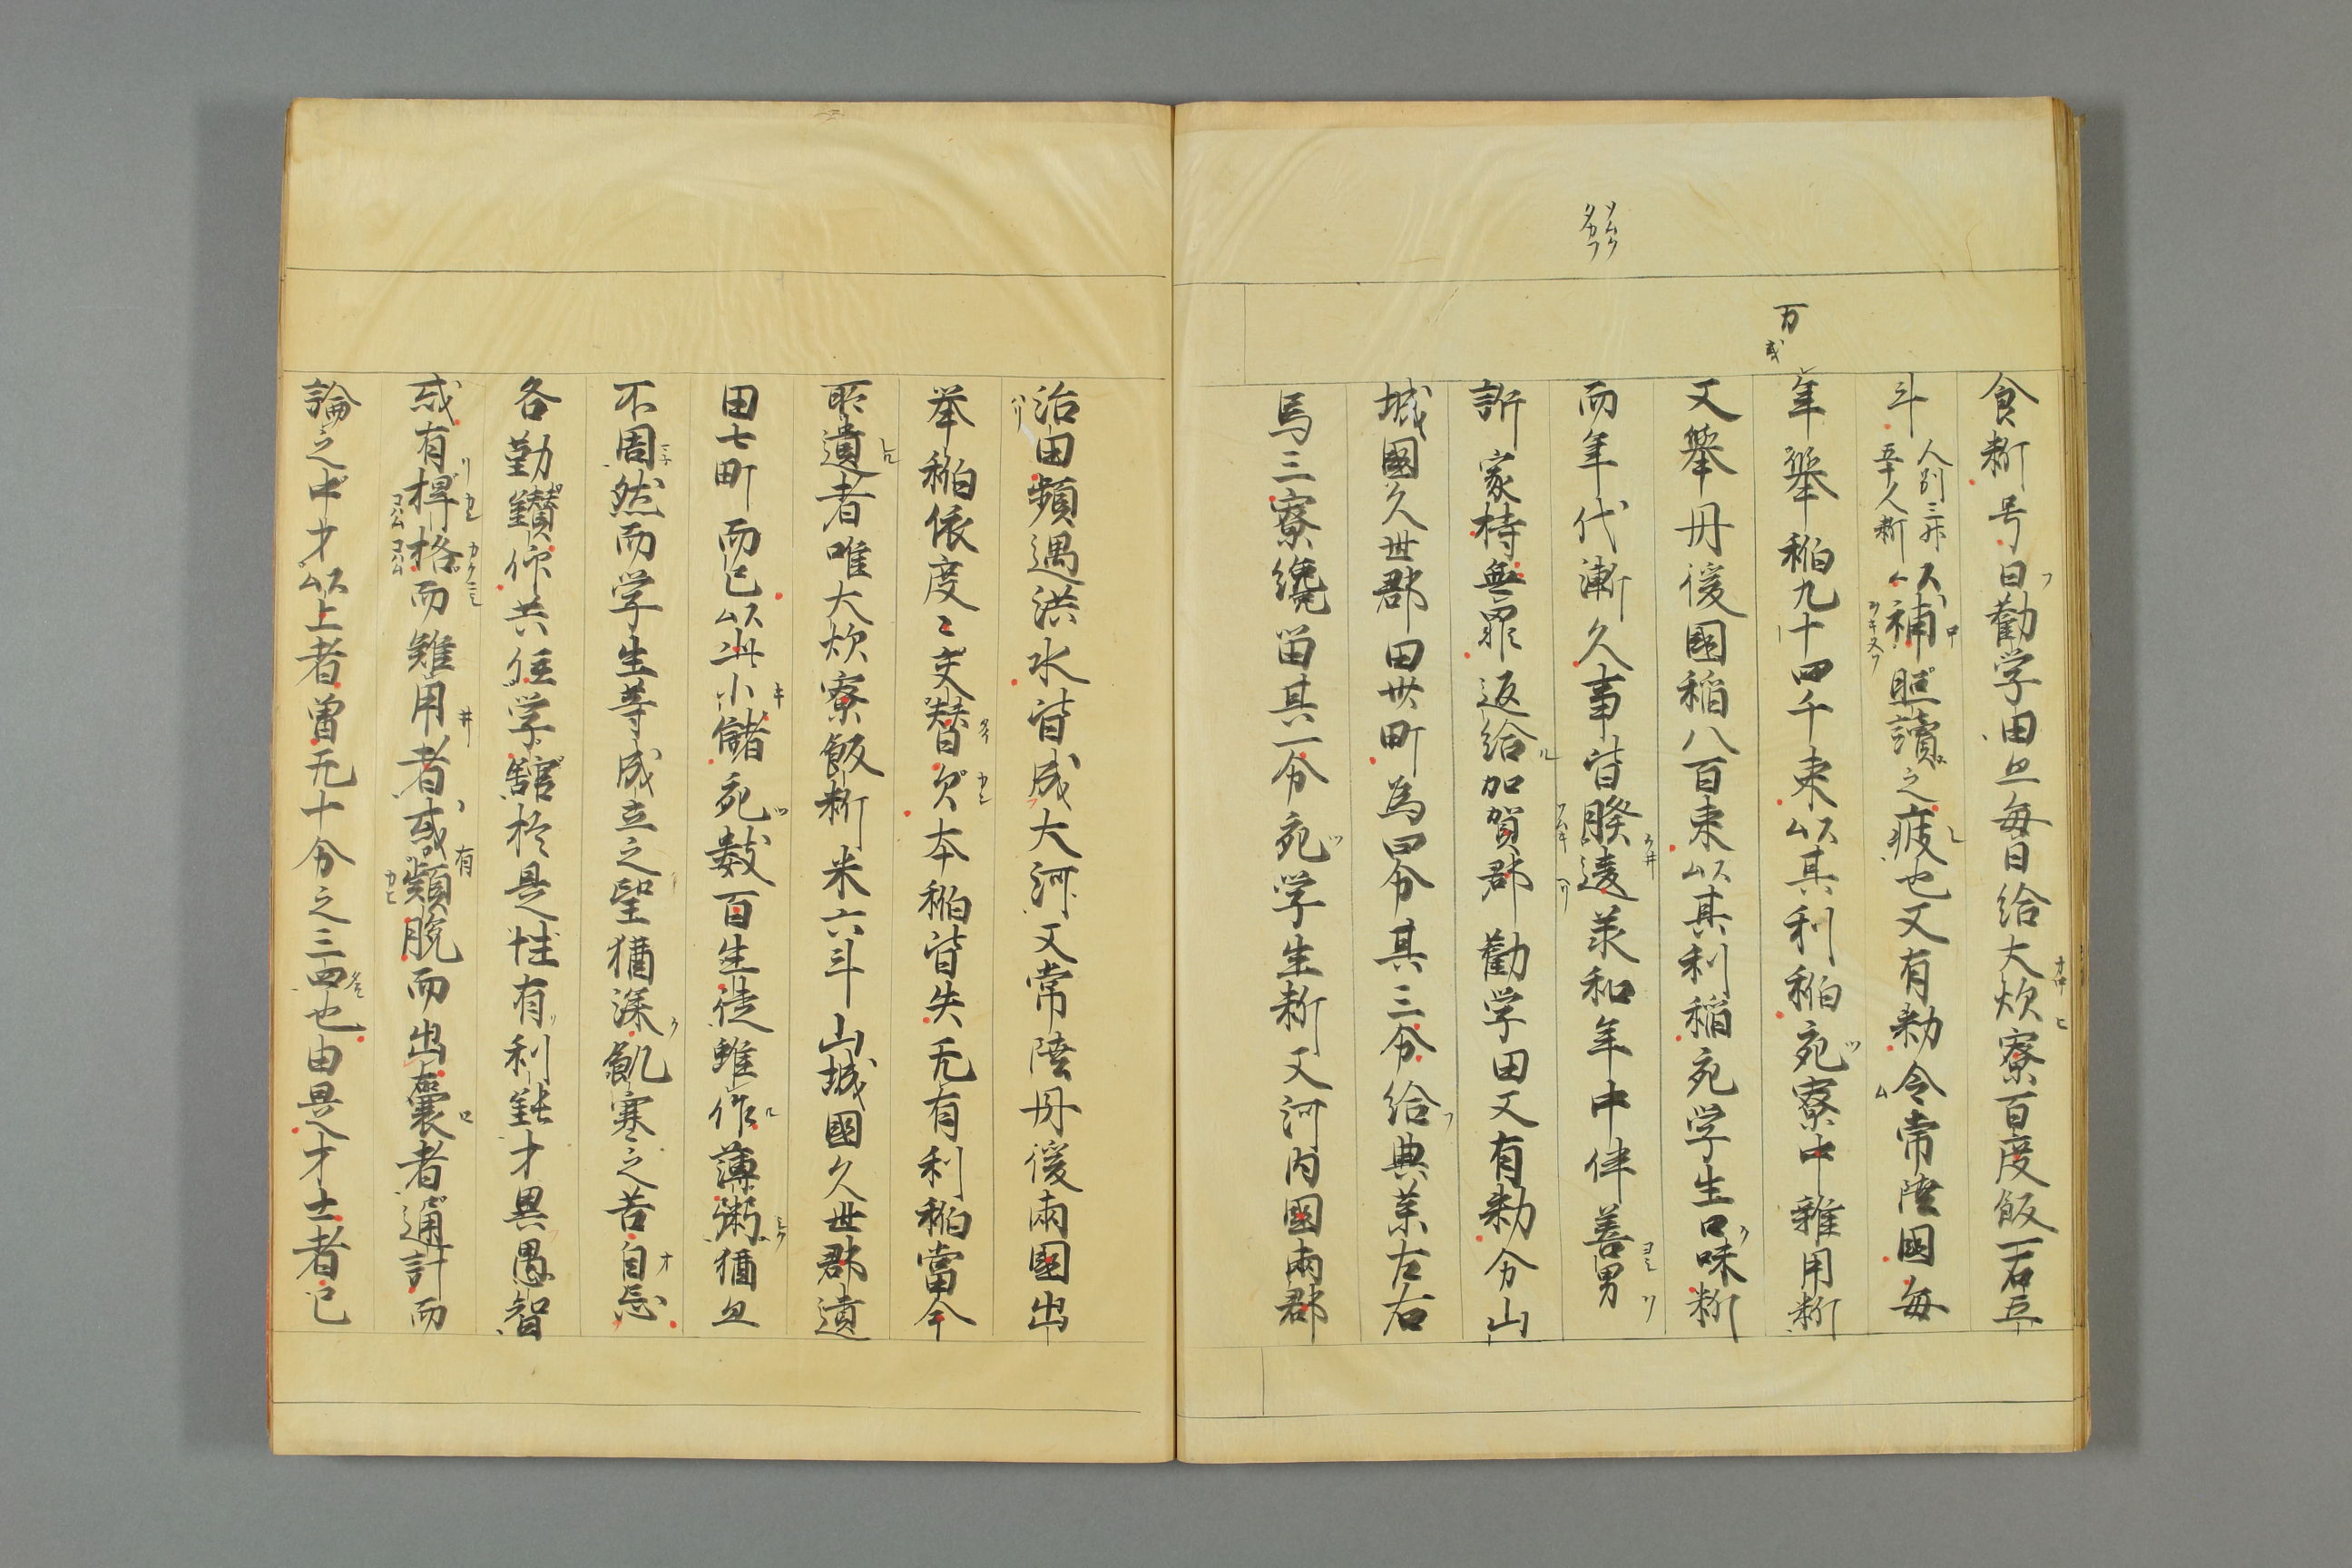 食料号曰勸学田且毎日給大炊寮百度飯一石五
斗人別三升五十人料以補照讀之疲也又有勅令常陸國毎
年舉稲九十四千束以其利稲宛寮中雜用料
又舉丹後國稲八百束以其利稲宛学生口味料
而年代漸久事皆睽違羕和年中伴善男
訴家持無罪返給加賀郡勸学田又有勅分山
城國久世郡田丗町為四分其三分給典薬左右
馬三寮纔留其一分宛学生料又河内國兩郡
治田頻遇洪水皆成大河又常陸丹後兩國出
举稲依度〻交替欠本稲皆失无有利稲當今
所遺者唯大炊寮飯料米六斗山城國久世郡遺
田七町而已以此小儲宛數百生徒雖作薄粥猶且
不周然而学生等成立之望猶深飢寒之苦自忘
各勤鑚仰共住学舘於是性有利鈍才異愚智
或有桿格而難用者或有頴脱而出囊者通計而
論之中才以上者曾无十分之三四也由是才士者已